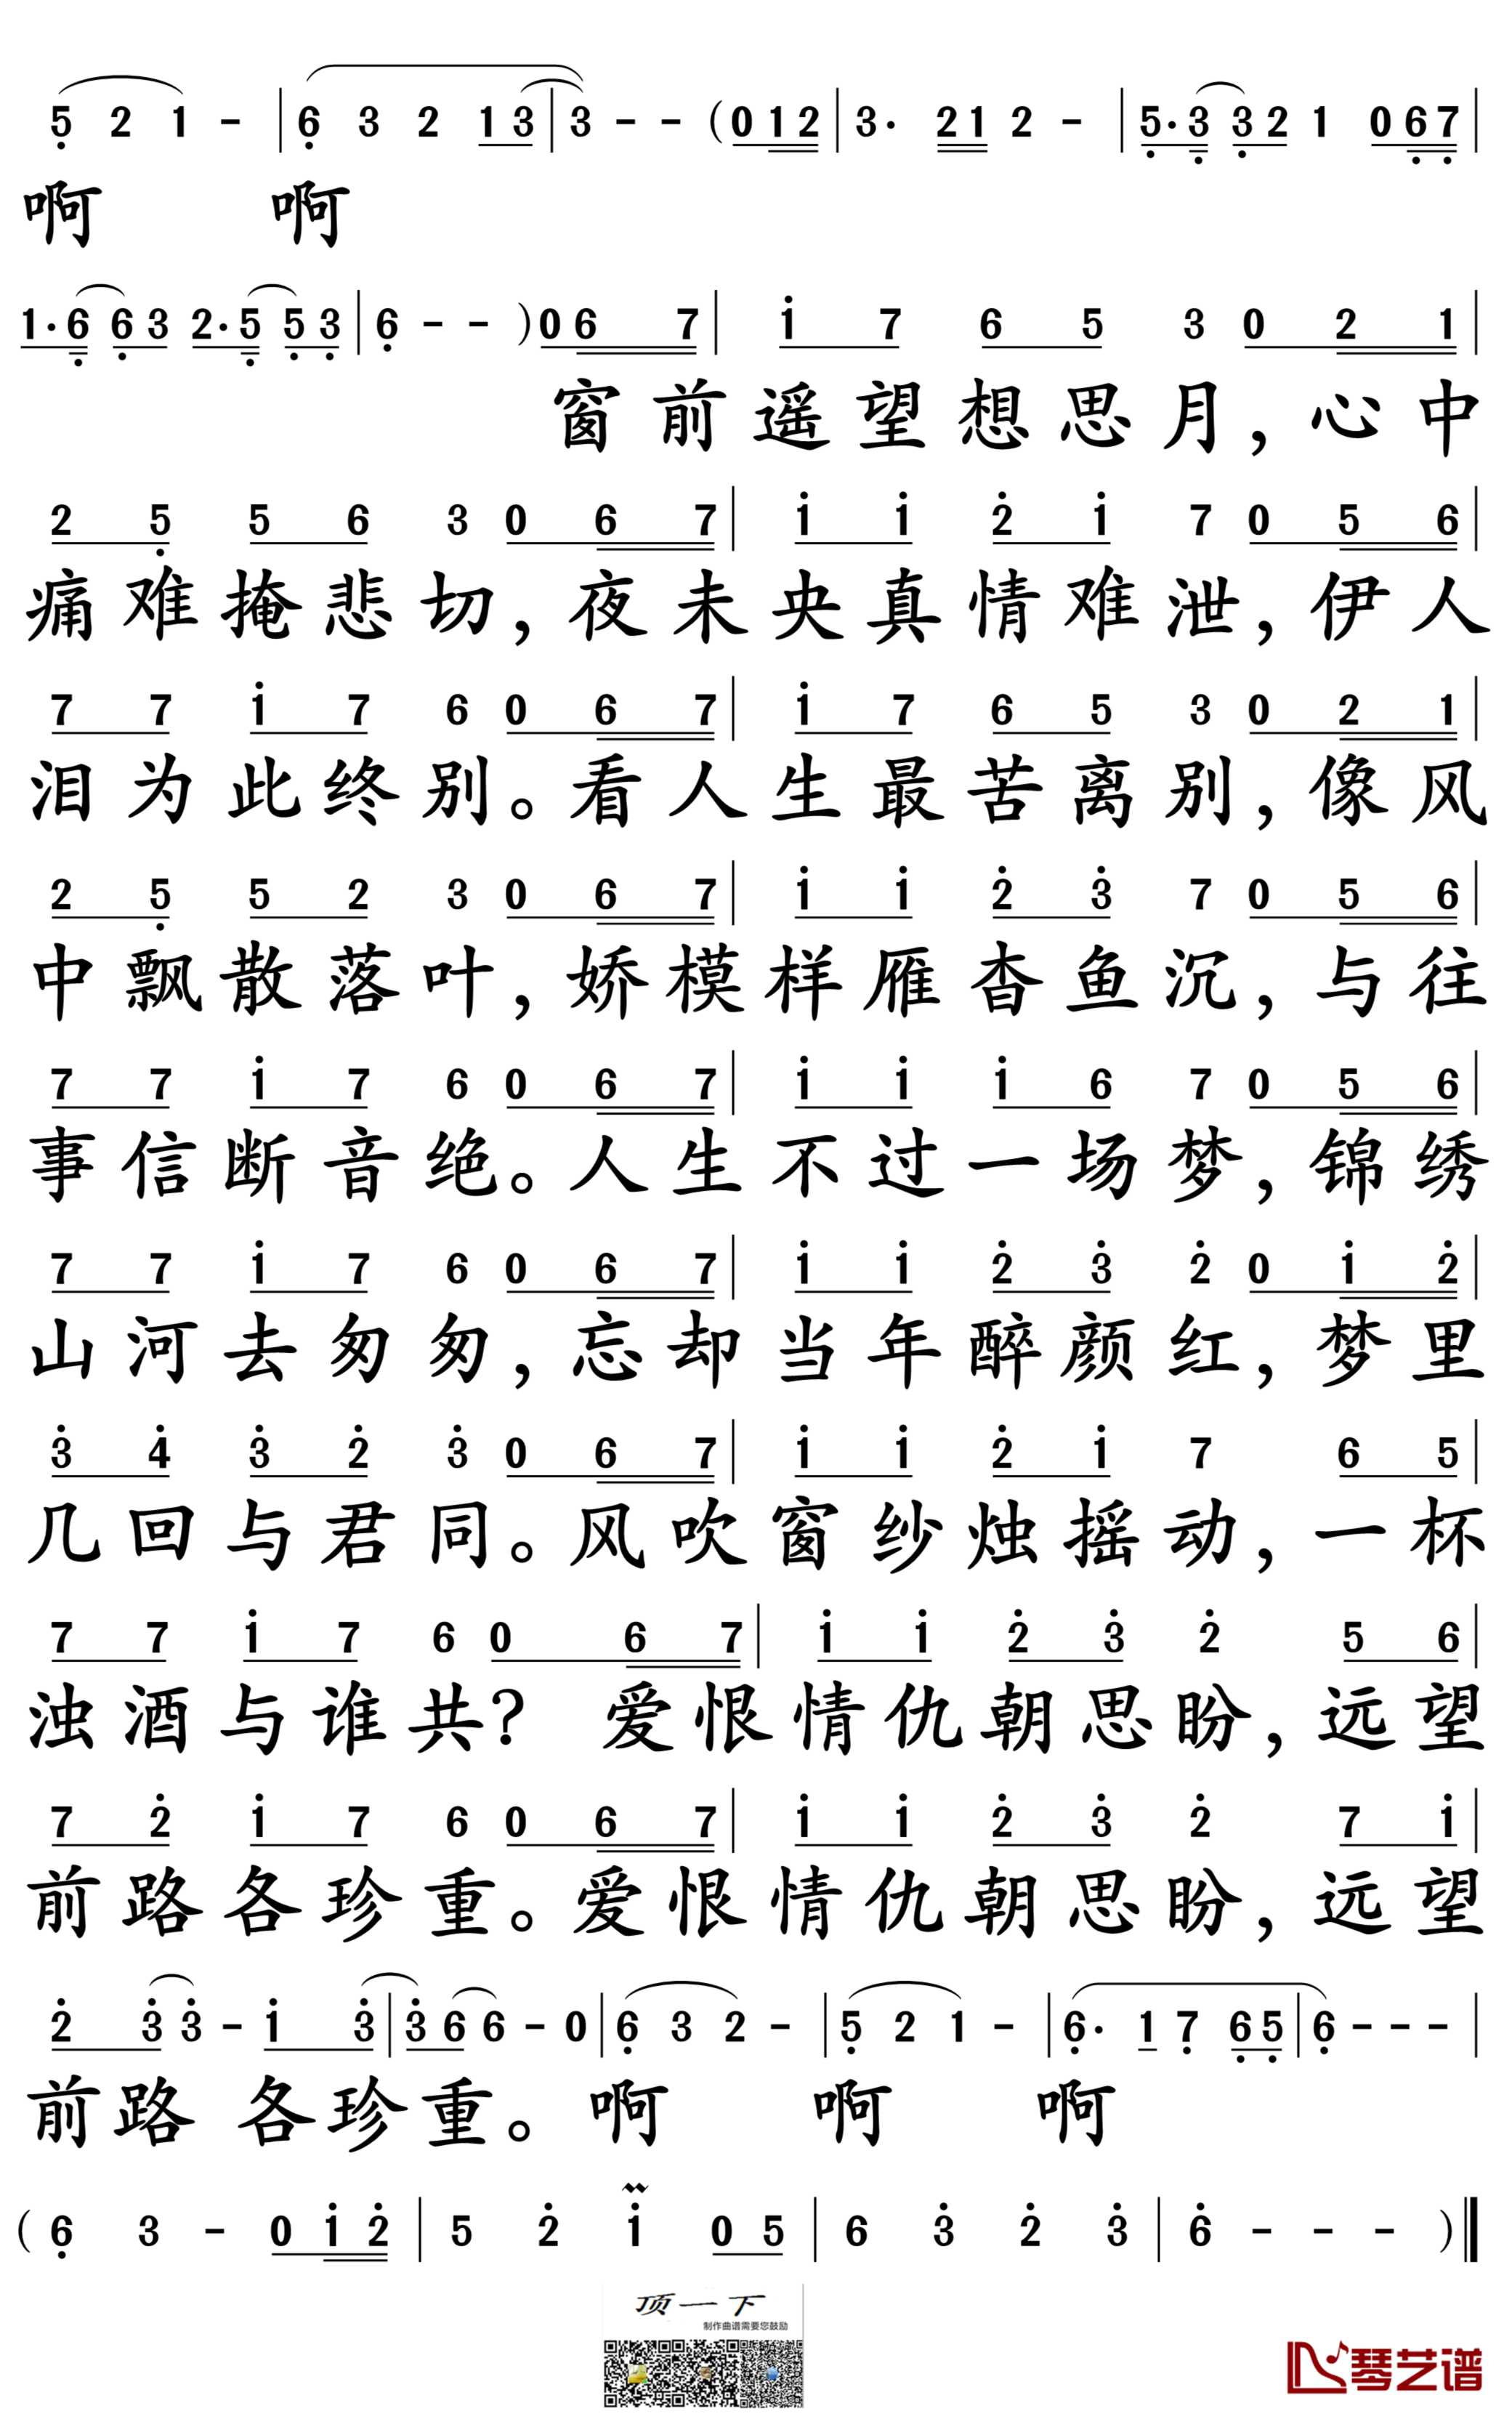 5 2 1 - | 6 3 2 1 3 | 3 - - ( 0 1 2 | 3· 2 1 2 - | 5·3 3 2 1 0 6 7 |
啊 啊
1·6 6 3 2·5 5 3 | 6 - - ) 0 6 7 | 1 7 6 5 3 0 2 1 |
窗前遥望想思月，心中
2 5 5 6 3 0 6 7 | 1 1 2 1 7 0 5 6 |
痛难掩悲切，夜未央真情难泄，伊人
7 7 1 7 6 0 6 7 | 1 7 6 5 3 0 2 1 |
泪为此终别。看人生最苦离别，像风
2 5 5 2 3 0 6 7 | 1 1 2 3 7 0 5 6 |
中飘散落叶，娇模样雁杳鱼沉，与往
7 7 1 7 6 0 6 7 | 1 1 1 6 7 0 5 6 |
事信断音绝。人生不过一场梦，锦绣
7 7 1 7 6 0 6 7 | 1 1 2 3 2 0 1 2 |
山河去匆匆，忘却当年醉颜红，梦里
3 4 3 2 3 0 6 7 | 1 1 2 1 7 6 5 |
几回与君同。风吹窗纱烛摇动，一杯
7 7 1 7 6 0 6 7 | 1 1 2 3 2 5 6 |
浊酒与谁共？ 爱恨情仇朝思盼，远望
7 2 1 7 6 0 6 7 | 1 1 2 3 2 7 1 |
前路各珍重。爱恨情仇朝思盼，远望
2 3 3 - 1 3 | 3 6 6 - 0 | 6 3 2 - | 5 2 1 - | 6· 1 7 6 5 | 6 - - - |
前路 各珍重。啊 啊 啊
( 6 3 - 0 1 2 | 5 2 1 0 5 | 6 3 2 3 | 6 - - - )
顶一下
制作曲谱需要您鼓励
琴艺谱